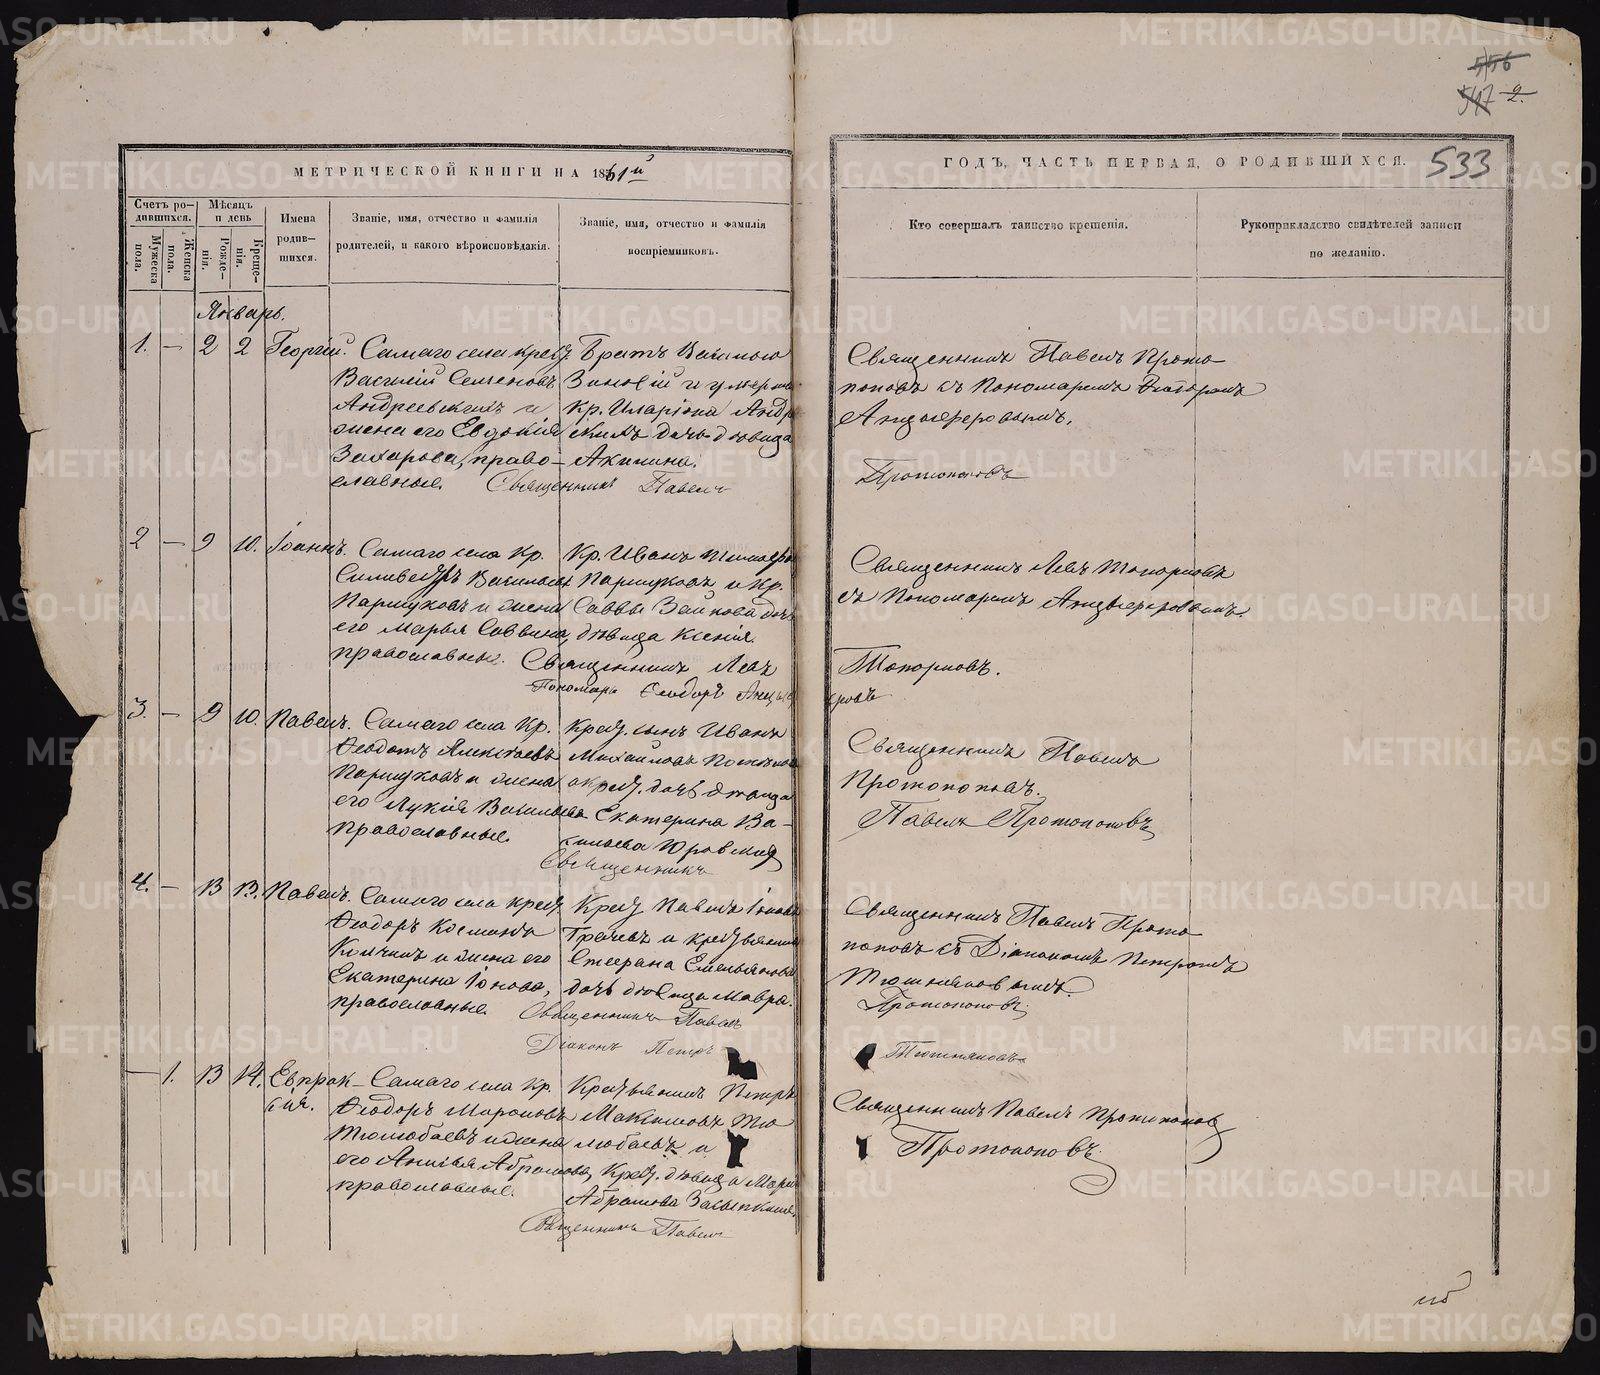 556
547 2.
МЕТРИЧЕСКОЙ КНИГИ НА 1861й
ГОДЪ, ЧАСТЬ ПЕРВАЯ, О РОДИВШИХСЯ.
533
Счетъ ро-
дившихся.
Мужеска
пола.
Женска
пола.
Мѣсяцъ
и день
Рожде-
нія.
Креще-
нія.
Имена
родив-
шихся.
Званіе, имя, отчество и фамилія
родителей, и какого вѣроисповѣданія.
Званіе, имя, отчество и фамилія
воспріемниковъ.
Кто совершалъ таинство крещенія.
Рукоприкладство свидѣтелей записи
по желанію.
Январь.
1. — 2 2 Георгій.
Самаго села крест.
Василій Семеновъ
Андреевскихъ и
жена его Евдокія
Захарова, право-
славные.
Братъ
Зиновій и умерш
кр. Иларіона Андр
скихъ дочь дѣвица
Акилина.
Священникъ Павелъ
Священникъ Павелъ Прото
поповъ съ Пономаремъ Ѳеодоромъ
Анцыферовымъ.
Протопоповъ
2 — 9 10. Іоаннъ.
Самаго села Кр.
Силивестръ Васильевъ
Паршуковъ и жена
его Марья Саввина,
православные.
Кр. Иванъ
Паршуковъ и Кр.
Саввы Заикова доч
дѣвица Ксенія.
Священникъ Левъ
Пономарь Ѳеодоръ Анцыфе
Священникъ Левъ Топорковъ
съ Пономаремъ Анцыферовымъ.
Топорковъ.
ровъ
3. — 9 10. Павелъ.
Самаго села Кр.
Ѳеодотъ Алексѣевъ
Паршуковъ и жена
его Лукія Васильева
православные.
Крест. сынъ Иванъ
Михайловъ
и крест. дочь дѣвица
Екатерина Ва-
сильева Юровская
Священникъ
Священникъ Павелъ
Протопоповъ.
Павелъ Протопоповъ
4. — 13 13. Павелъ.
Самаго села крест
Ѳеодоръ Косминъ
и жена его
Екатерина Іонова,
православные.
Крест Павелъ Іоновъ
Грачевъ и крестьянина
Стефана Емельянова
дочь дѣвица Мавра.
Священникъ Павелъ
Діаконъ Петръ
Священникъ Павелъ Прото
поповъ съ Діакономъ Петромъ
Тюшняковымъ.
Протопоповъ.
Тюшняковъ
— 1. 13 14. Евпрак-
сія.
Самаго села Кр.
Ѳеодоръ Мироновъ
Тюлюбаевъ и жена
его Анисья Абрамова,
православные.
Крестьянинъ Петръ
Максимовъ Тю
любаевъ и
Крест. дѣвица Марія
Абрамова Засыпкина.
Священникъ Павелъ
Священникъ Павелъ Протопопов
Протопоповъ.
METRIKI.GASO-URAL.RU